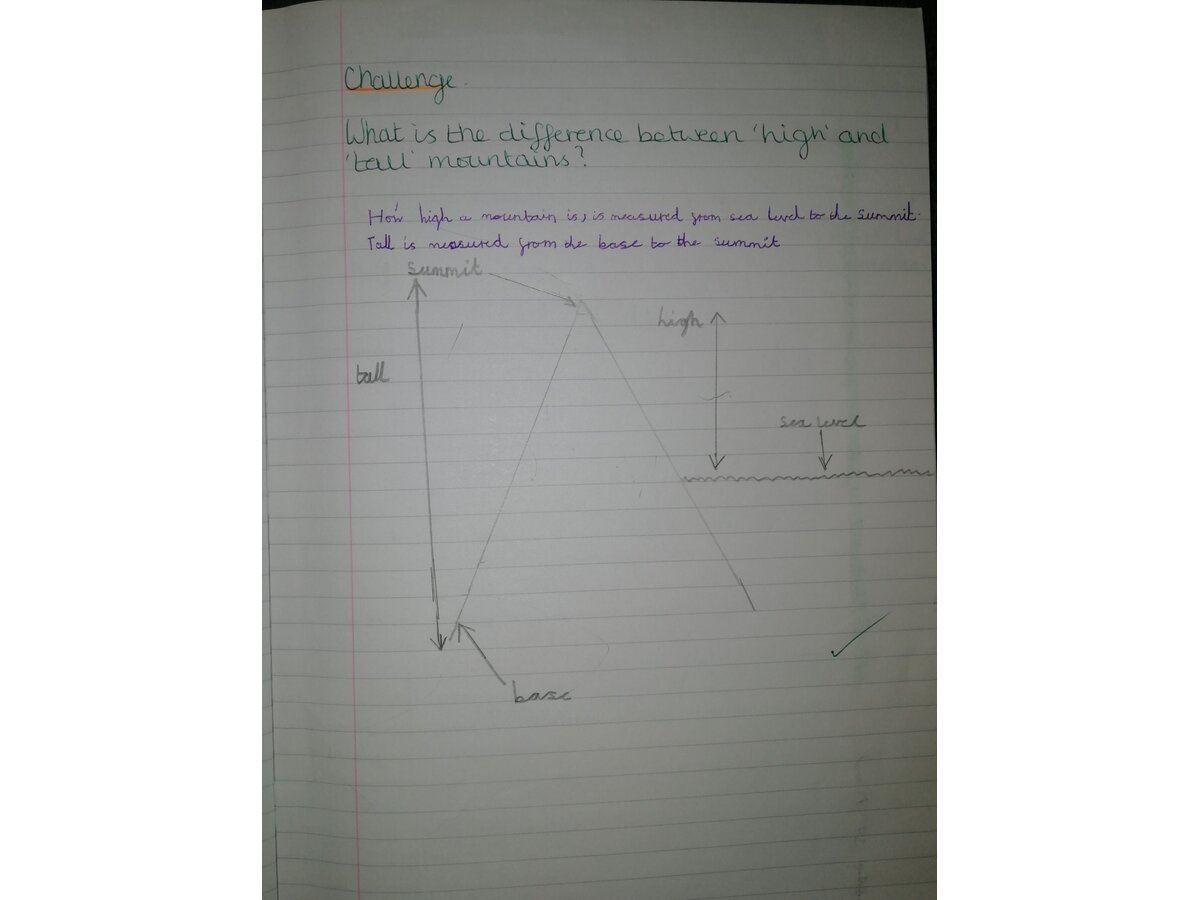 Challenge.
What is the difference between 'high' and
'tall' mountains?
How high a mountain is, is measured from sea level to the summit.
Tall is measured from the base to the summit
summit
high
tall
sea level
base